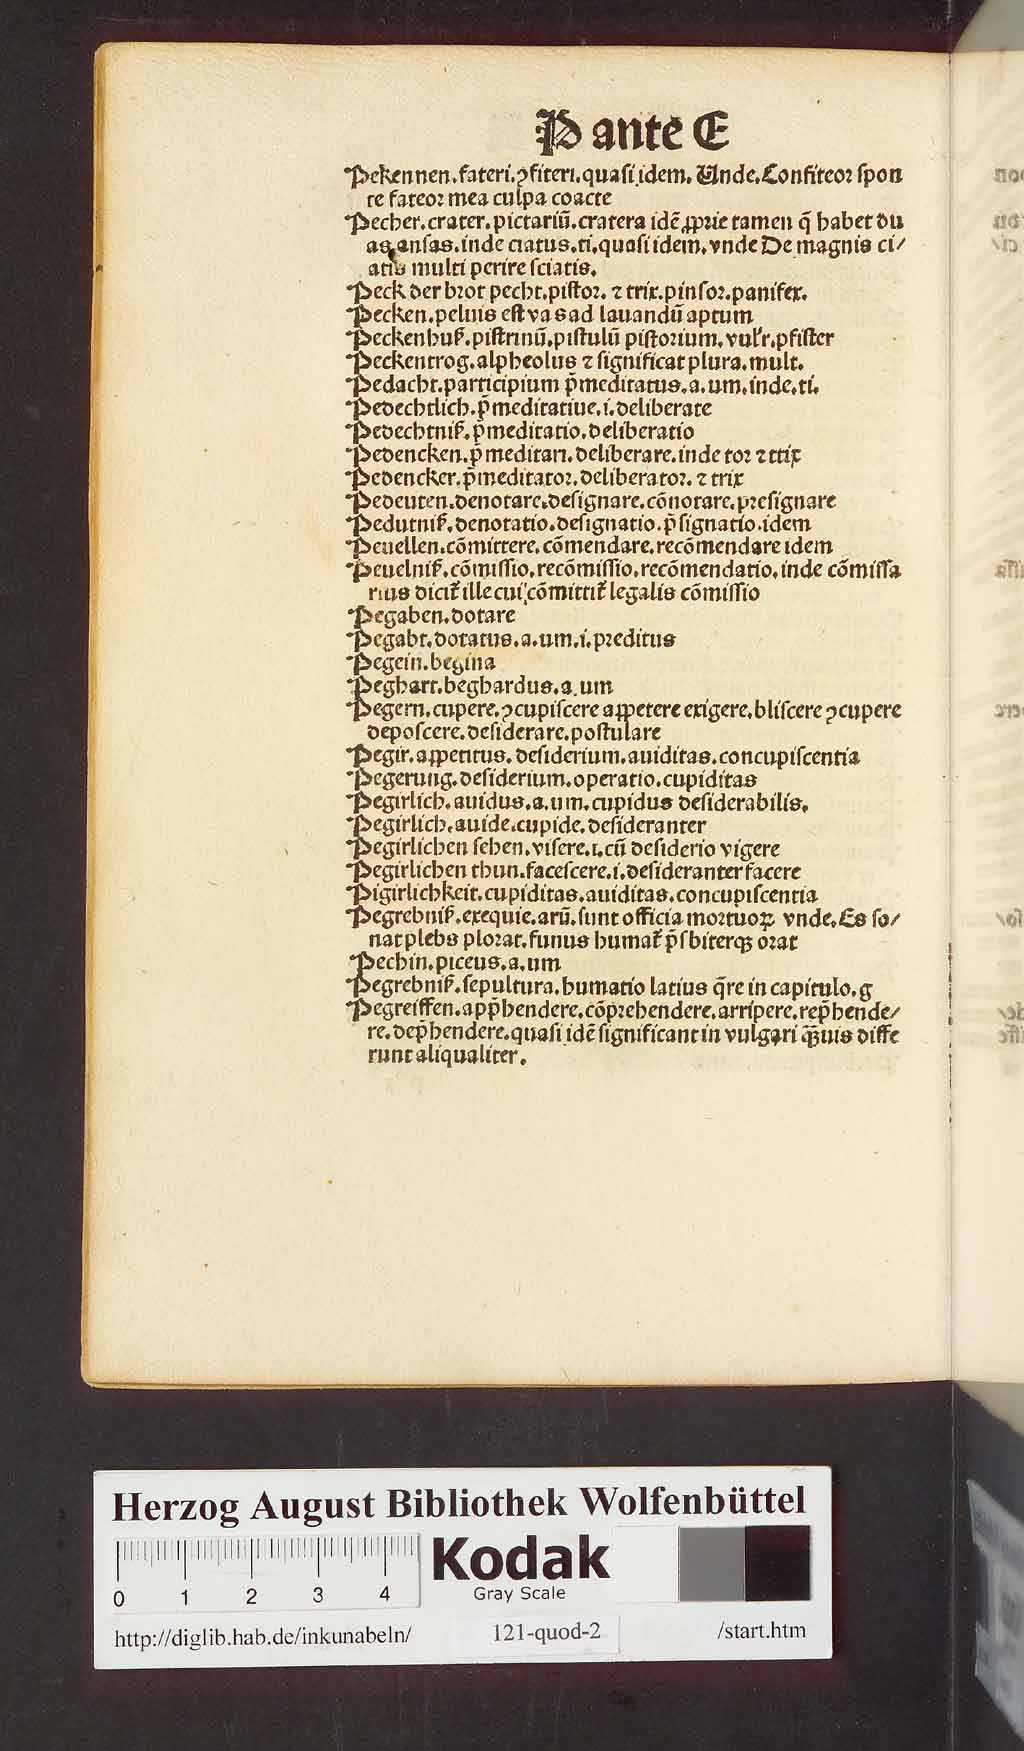 P ante E
Pekennen.fateri.ꝯfiteri.quaſi idem. Unde.Confiteor ſpon
te fateor mea culpa coacte
Pecher.crater.pictariū.cratera idē ꝓprie tamen q̄ habet du
as anſas.inde ciatus.ti.quaſi idem.vnde De magnis ci/
atis multi perire ſciatis.
Peck der brot pecht.piſtor. ⁊ trix.pinſor.panifex.
Pecken.peluis eſt vas ad lauandū aptum
Peckenhuß.piſtrinū.piſtulū piſtorium.vulr̕.pfiſter
Peckentrog.alpheolus ⁊ ſignificat plura.mult.
Pedacht.participium p̄meditatus.a.um.inde.ti.
Pedechtlich.p̄meditatiue.i.deliberate
Pedechtniß.p̄meditatio.deliberatio
Pedencken.p̄meditari.deliberare.inde tor ⁊ ttix
Pedencker.p̄meditator.deliberator. ⁊ trix
Pedeuten.denotare.deſignare.cōnotare.preſignare
Pedutniß.denotatio.deſignatio.p̄ſignatio.idem
Peuellen.cōmittere.cōmendare.recōmendare idem
Peuelniß.cōmiſſio.recōmiſſio.recōmendatio.inde cōmiſſa
rius dicit̄ ille cui cōmittit̄ legalis cōmiſſio
Pegaben.dotare
Pegabt.dotatus.a.um.i.preditus
Pegein.begina
Peghart.beghardus.a.um
Pegern.cupere.ꝯcupiſcere appetere exigere.bliſcere ꝯcupere
depoſcere.deſiderare.poſtulare
Pegir.appetitus.deſiderium.auiditas.concupiſcentia
Pegerung.deſiderium.operatio.cupiditas
Pegirlich.auidus.a.um.cupidus deſiderabilis.
Pegirlich.auide.cupide.deſideranter
Pegirlichen ſehen.viſere.i.cū deſiderio vigere
Pegirlichen thun.faceſcere.i.deſideranter facere
Pigirlichkeit.cupiditas.auiditas.concupiſcentia
Pegrebniß.exequie.arū.ſunt officia mortuoꝝ vnde.Es ſo/
nat plebs plorat.funus humat̄ p̄ſbiterqꝫ orat
Pechin.piceus.a.um
Pegrebniß.ſepultura.humatio latius q̄re in capitulo.g
Pegreiffen.app̄hendere.cōprehendere.arripere.rep̄hende/
re.dep̄hendere.quaſi idē ſignificant in vulgari qͣꝫuis diffe
runt aliqualiter.
Herzog August Bibliothek Wolfenbüttel
0 1 2 3 4
Kodak
Gray Scale
http://diglib.hab.de/inkunabeln/ 121-quod-2 /start.htm